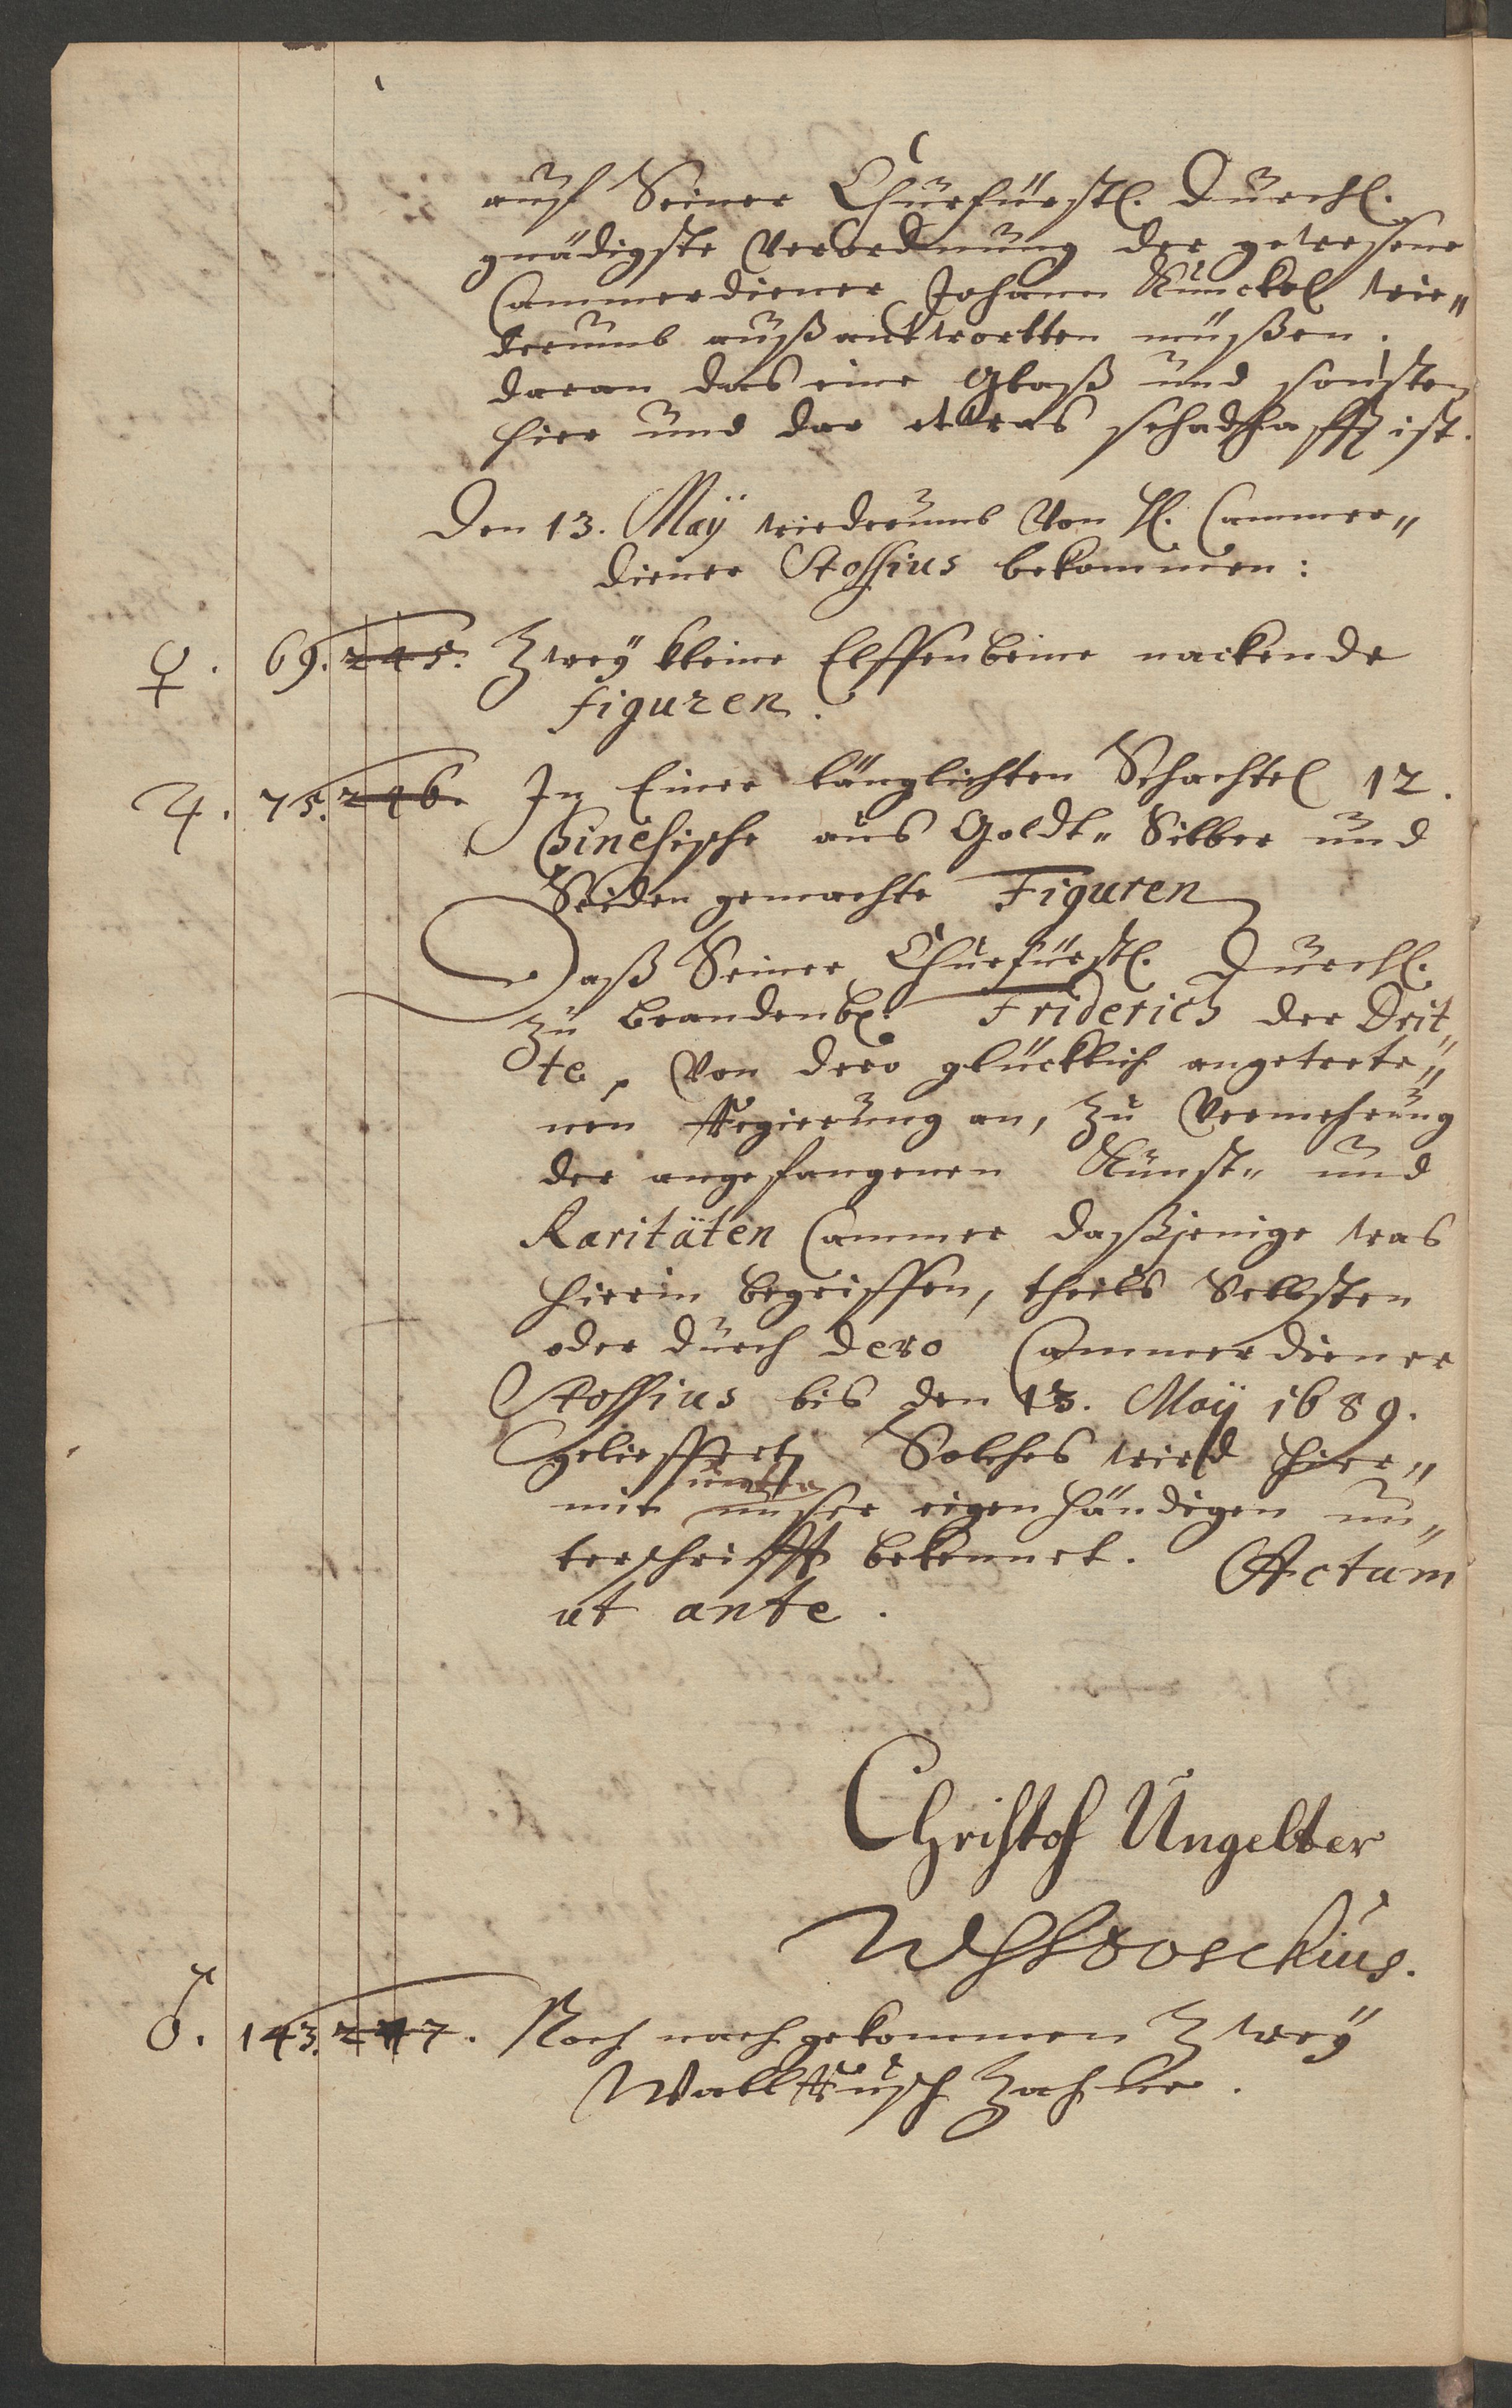 auf Seiner Churfürstl. Durchl.
gnädigste Verordnung der gewesene
Cammerdiener Johann Kunckel wie„
derumb außantwortten müßen.
daran das eine Glaß und sonsten
hier und dar etwas schadhafft ist.
Den 13. Maÿ wiederumb von H. Cammer„
diener Stossius bekommen:
♀. 69. 245. Zweÿ kleine Elffenbeine nackende
figuren.
♃. 75. 246. In Einer länglichten Schachtel 12.
Sinesische aus Goldt„ Silber und
Seiden gemachte Figuren
Daß Seiner Churfürstl. Durchl.
zu Brandenb. Friderich der Drit„
te, von dero glücklich angetrete„
nen Regierung an, zu Vermehrung
der angefangenen Kunst„ und
Raritäten Cammer dasjenige was
hierin begriffen, theils Selbsten
oder durch dero Cammerdiener
Stossius bis den 13. Maÿ 1689.
geliesffert, Solches wird hier„
unter
mit unser eigenhändigen un„
terschrifft bekennet. Actum
ut ante.
Christof Ungelter
♂. 143. 247. Noch nachgekommen Zweÿ
Wallfisch Zahne.